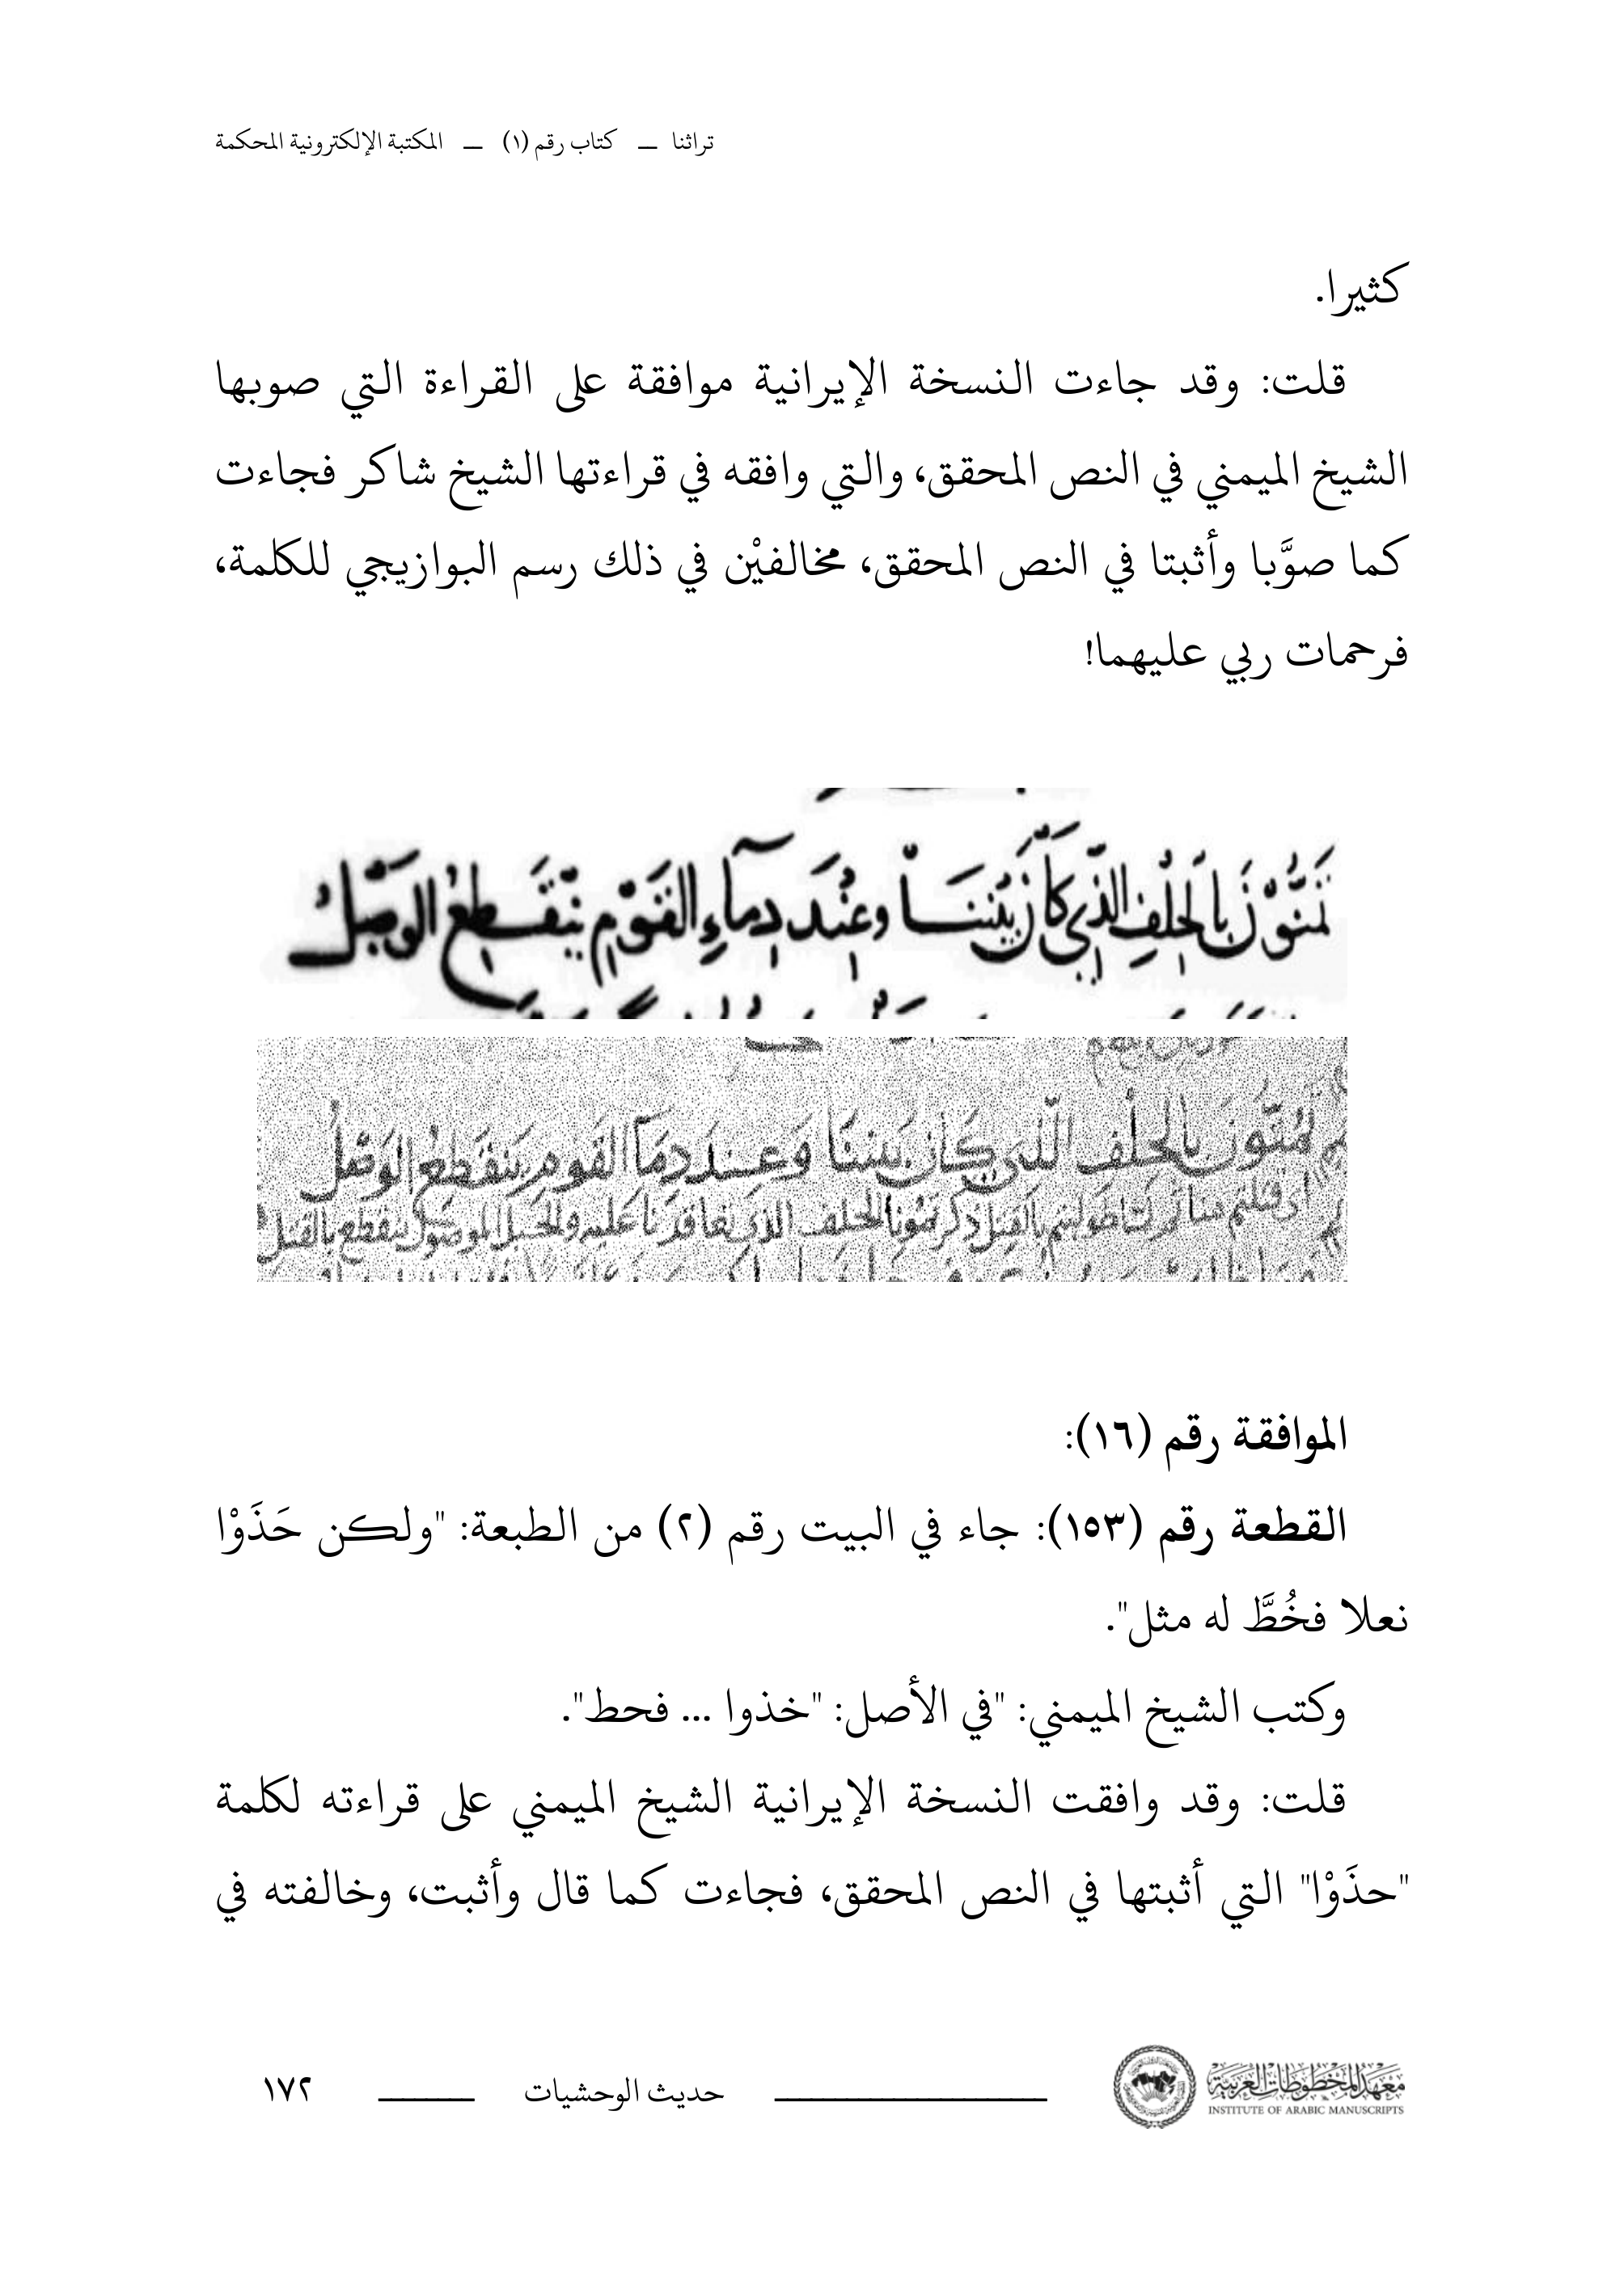 تراثنا — كتاب رقم (١) — المكتبة الإلكترونية المحكمة
كثيرا.
قلت: وقد جاءت النسخة الإيرانية موافقة على القراءة التي صوبها
الشيخ الميمني في النص المحقق، والتي وافقه في قراءتها الشيخ شاكر فجاءت
كما صوَّبا وأثبتا في النص المحقق، مخالفيْن في ذلك رسم البوازيجي للكلمة،
فرحمات ربي عليهما!
بِالحِلْفِ الذِّي كَانَ بَيْنَنَا وعِنْدَ دِمآءِ القَوْمِ يَنْقَطِعُ الوَصْلُ
بالحلف الذي كان بيننا وَعند دمآ القوم ينقطع الوَصْلُ
بالقتل الحلف الذي تعاقدنا عليه والحبل الموصول ينقطع بالقتل
الموافقة رقم (١٦):
القطعة رقم (١٥٣): جاء في البيت رقم (٢) من الطبعة: "ولكن حَذَوْا
نعلا فخُطَّ له مثل".
وكتب الشيخ الميمني: "في الأصل: "خذوا ... فحط".
قلت: وقد وافقت النسخة الإيرانية الشيخ الميمني على قراءته لكلمة
"حذَوْا" التي أثبتها في النص المحقق، فجاءت كما قال وأثبت، وخالفته في
معهد المخطوطات العربية
INSTITUTE OF ARABIC MANUSCRIPTS
حديث الوحشيات
١٧٢